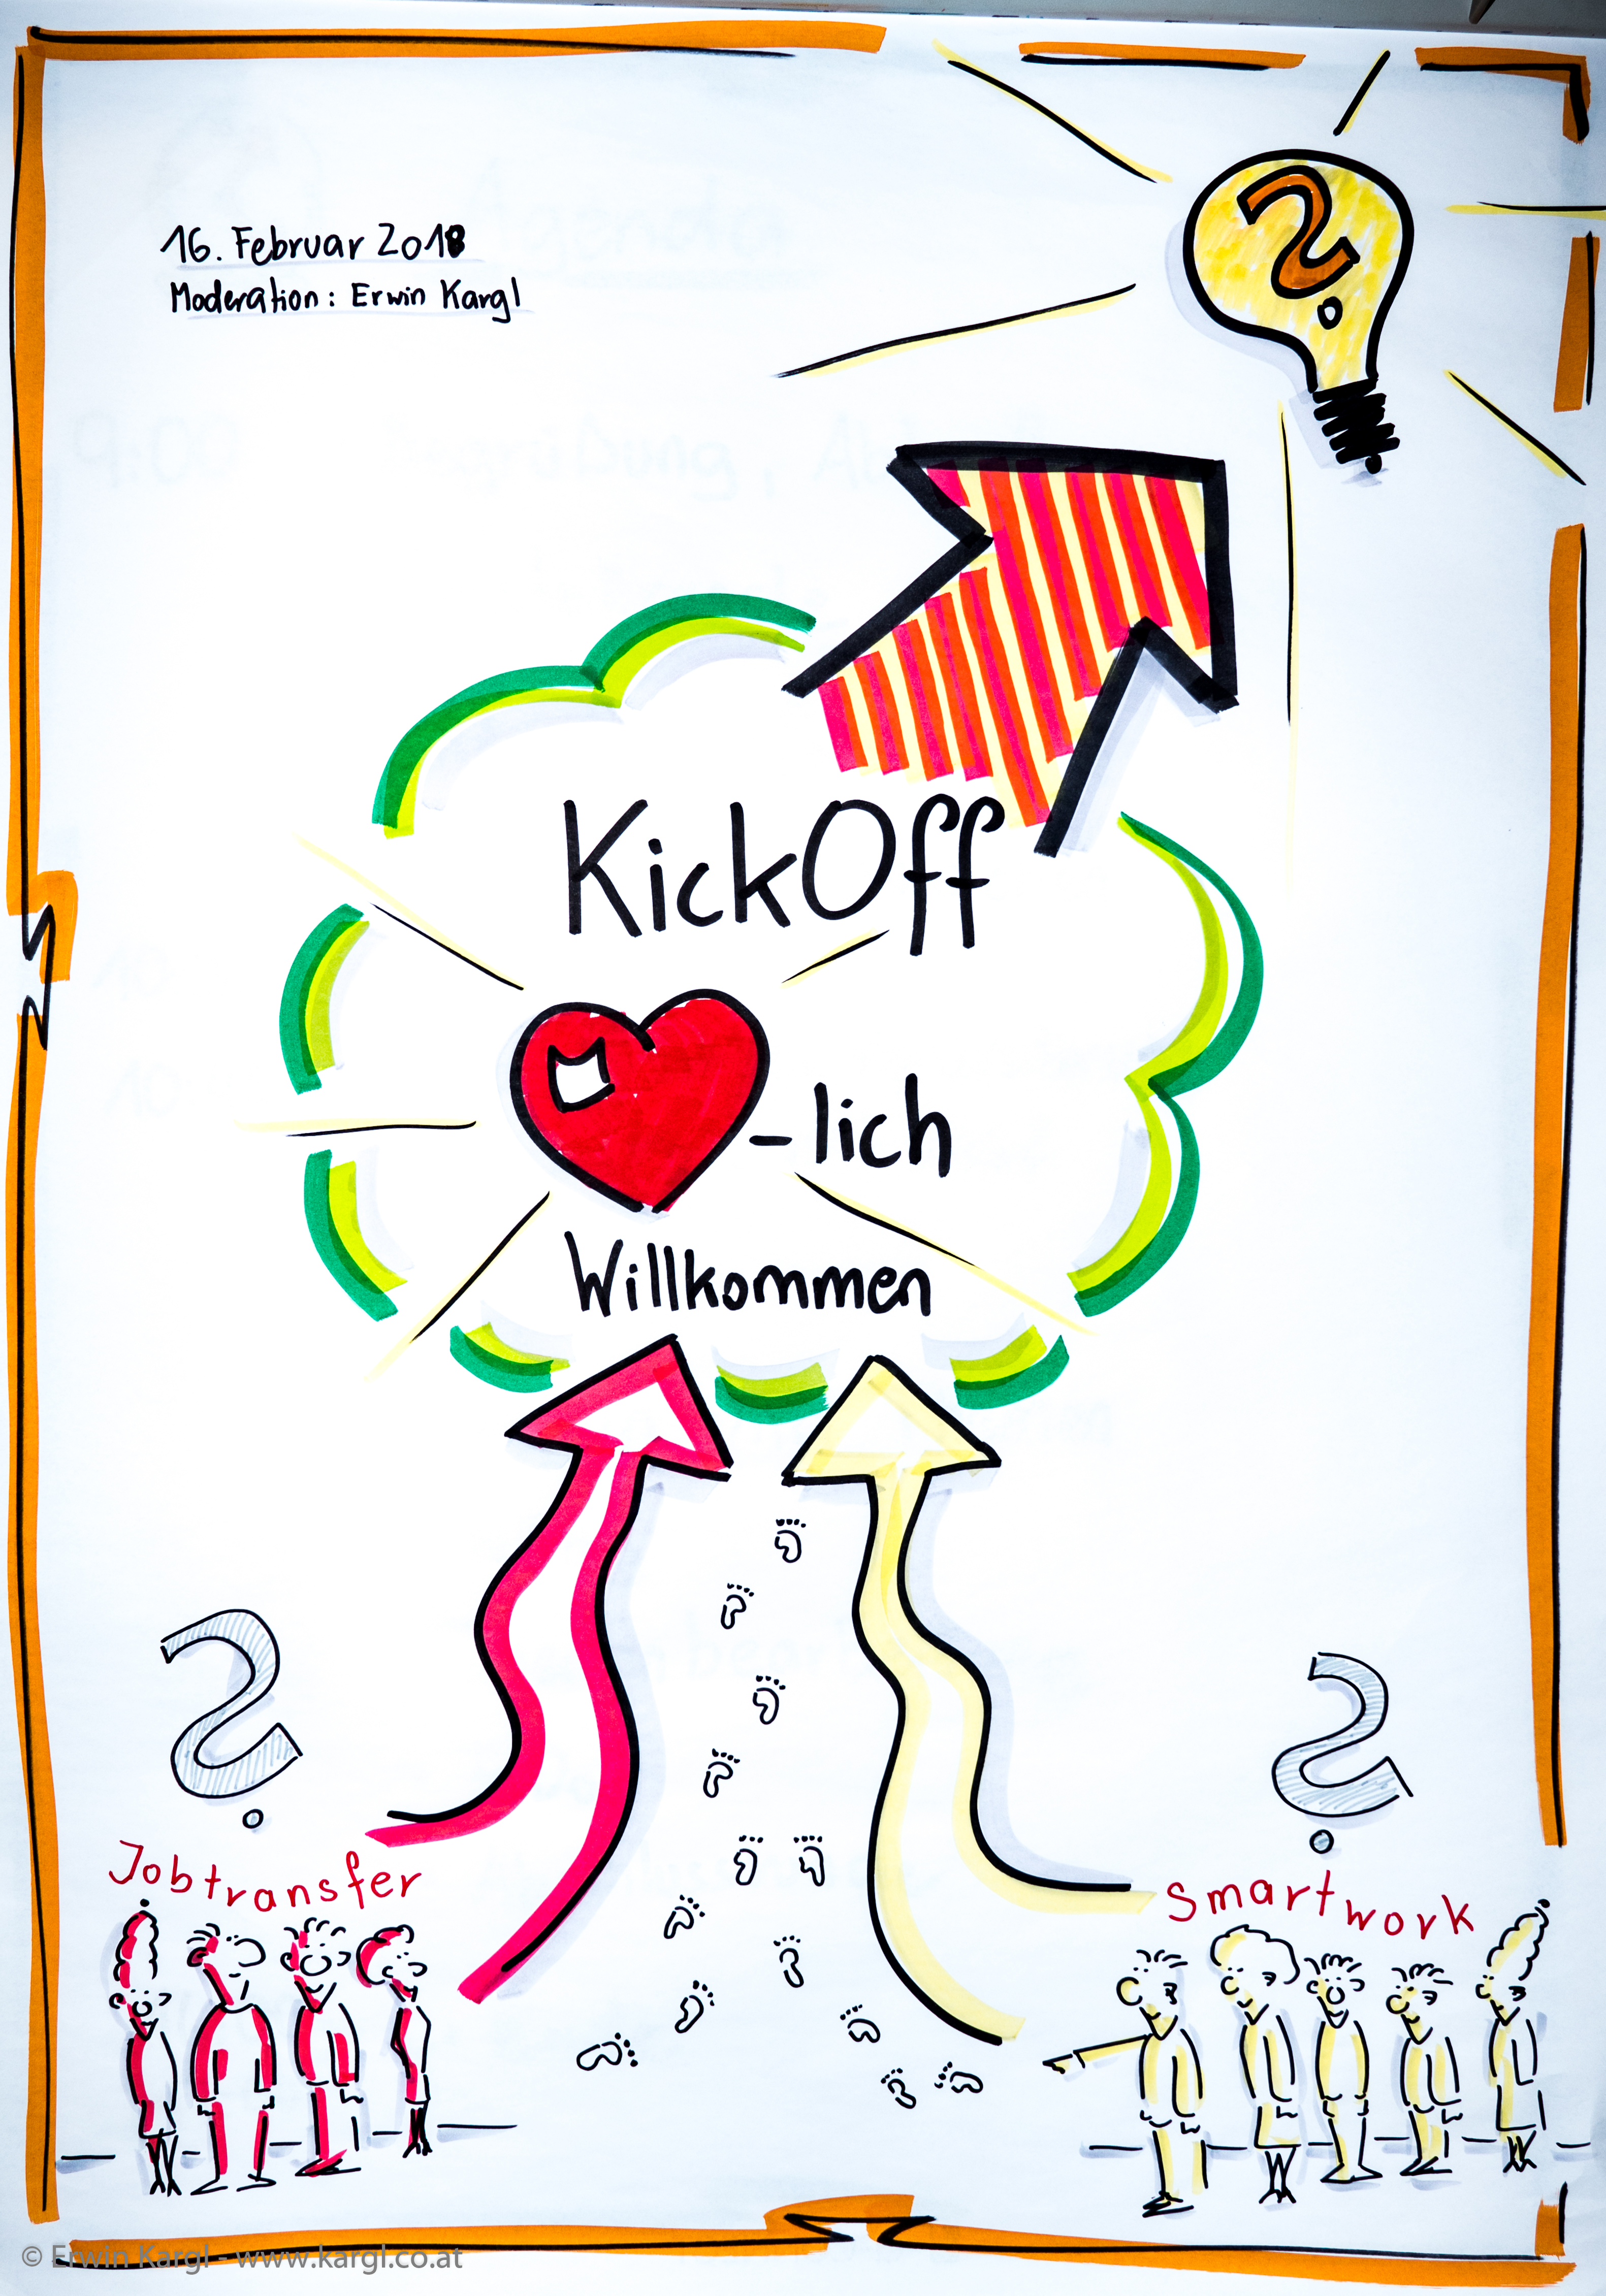 16. Februar 2018
Moderation: Erwin Kargl
KickOff
-lich
Willkommen
Jobtransfer
Smartwork
© Erwin Kargl - www.kargl.co.at